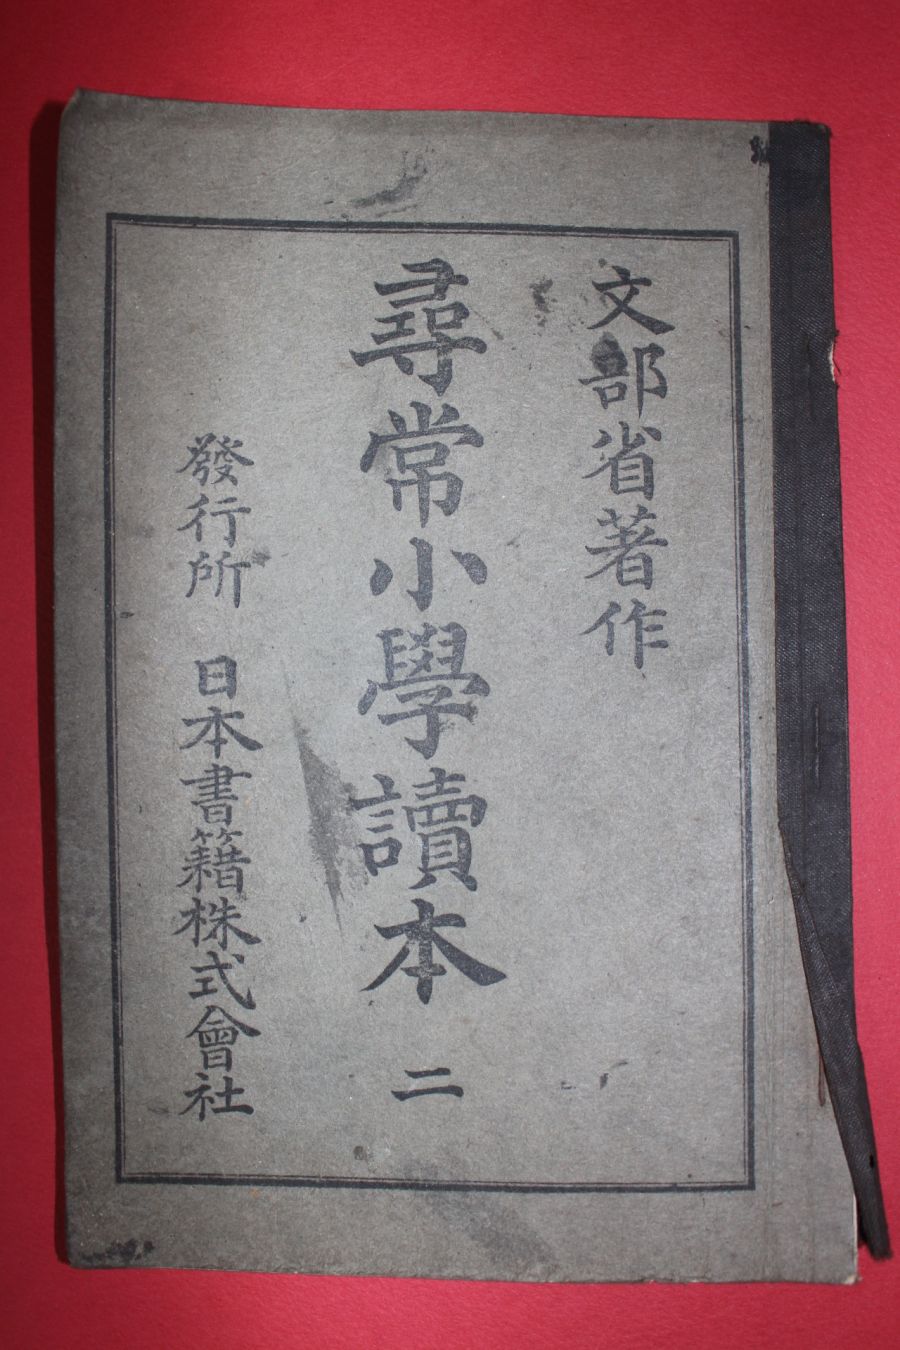 文部省著作
尋常小學讀本 二
發行所 日本書籍株式會社